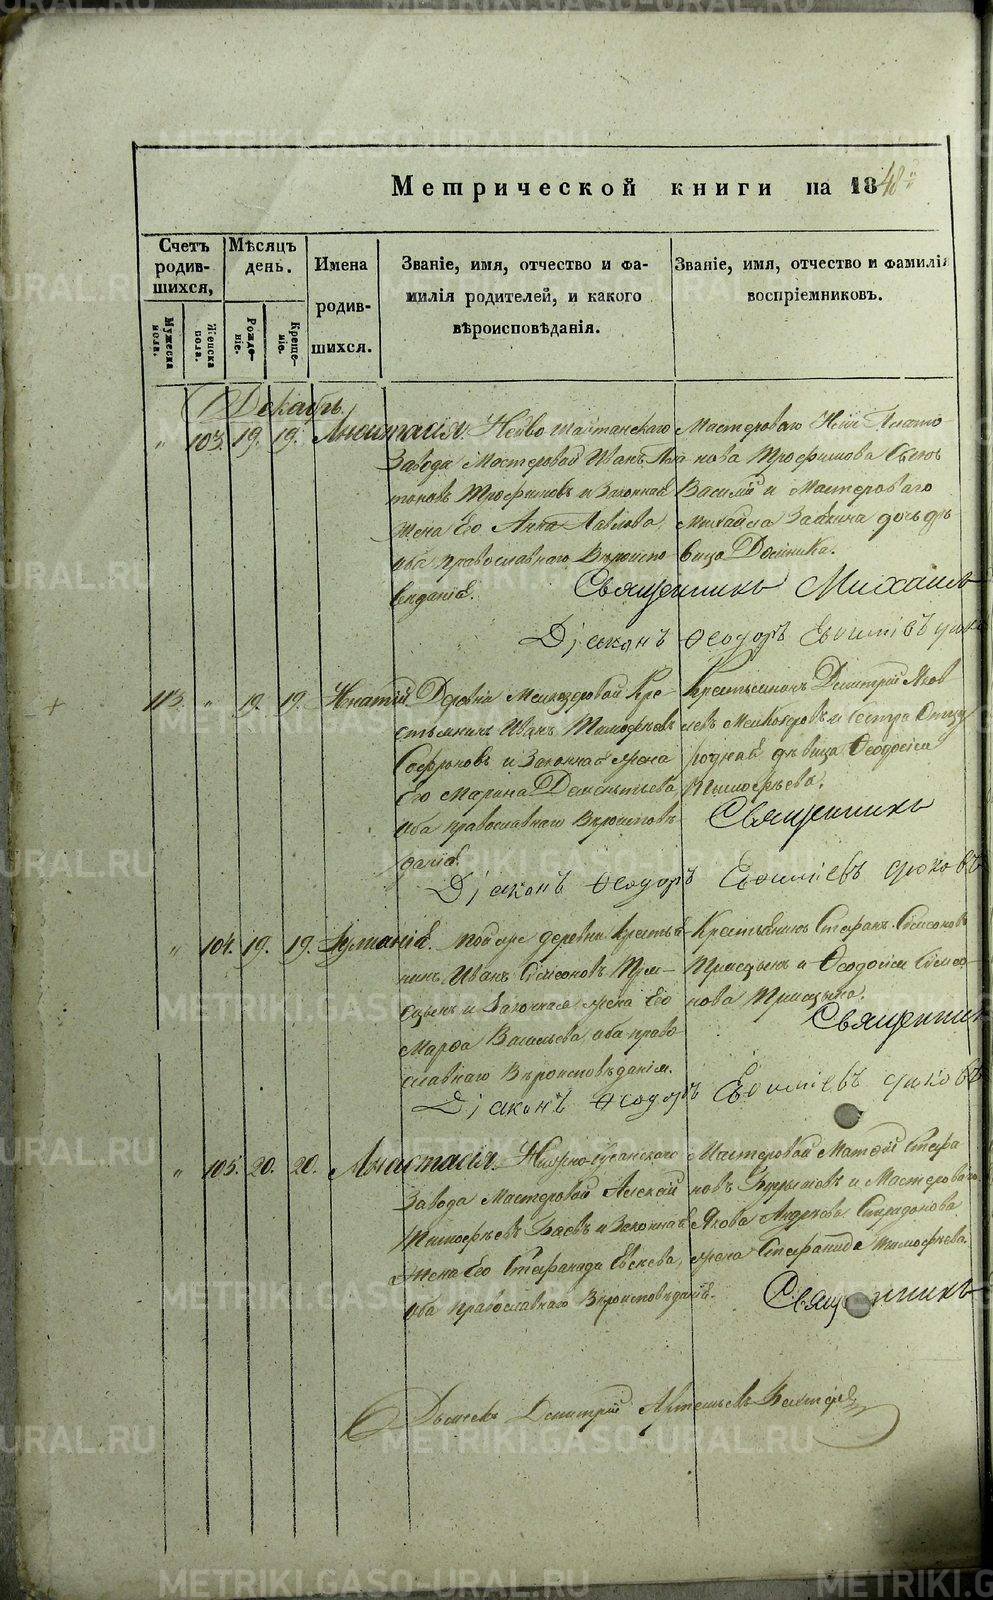 Метрической книги на 1848
Счетъ родив-шихся,
Мужеска пола.
Женска пола.
Мѣсяцъ день.
Рожде-ніе.
Креще-ніе.
Имена родив-шихся.
Званіе, имя, отчество и фа-милія родителей, и какого вѣроисповѣданія.
Званіе, имя, отчество и фамилія воспріемниковъ.
Декабрь.
" 103. 19. 19. Анастасія. Нейво Шайтанскаго
Завода Мастеровой Иванъ Пла-
тоновъ Трофимовъ и Законная
Жена Его Анна Павлова,
оба православнаго Вѣроиспо-
веданія.
Мастероваго Плато
нова Трофимова Сынъ
Василій и Мастероваго
Михаила дочь дѣ
вица Домника.
Священникъ Михаилъ
Діаконъ Ѳеодоръ
113. " 19. 19. Игнатій. Деревни Мелкозеровой Кре-
стьянинъ Иванъ Тимофѣевъ
Софроновъ и Законная жена
Его Марина Дементьева,
оба православнаго Вѣроиспов
данія.
Крестьянинъ Дмитрій Яков
левъ и Сестра
родная дѣвица Ѳеодосія
Тимофѣева.
Священникъ
Діаконъ Ѳеодоръ
" 104. 19. 19. Іуліанія. той же деревни Крестья
нинъ Иванъ Симоновъ
и Законная жена Его
Марѳа Васильева, оба право
славнаго Вѣроисповѣданія.
Крестьянинъ Стефанъ Симоновъ
и Ѳеодосія Симо-
нова
Священникъ
Діаконъ Ѳеодоръ
" 105. 20. 20. Анастасія. Нижне-Сусанскаго
Завода Мастеровой Алексѣй
Тимофѣевъ и Законная
Жена Его Стефанида
оба православнаго Вѣроисповѣданія.
Мастеровой Матвѣй Стефа
новъ и Мастероваго
Якова Андреева Спиридонова
жена Стефанида Тимофѣева.
Священникъ
Дьячекъ Дмитрій
METRIKI.GASO-URAL.RU